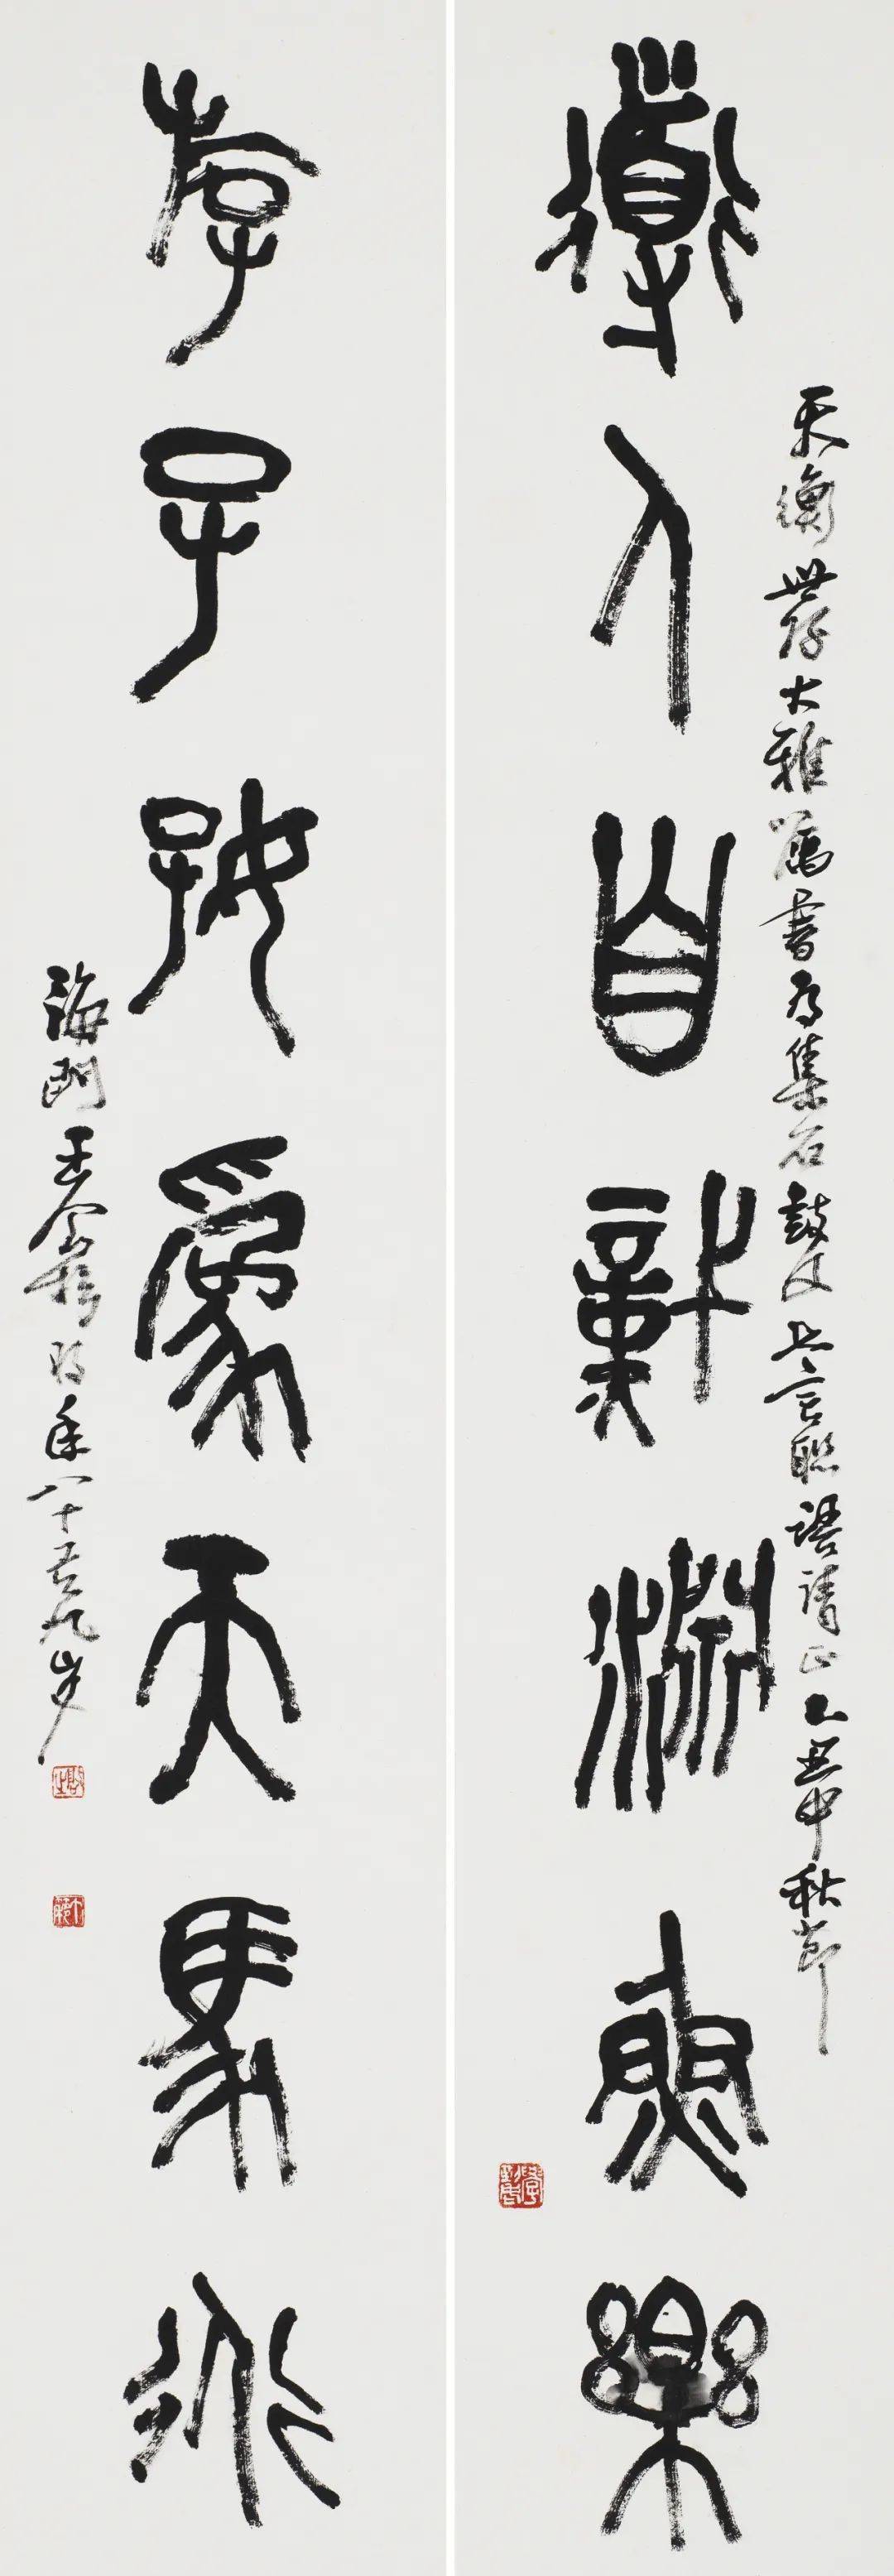 導人自淵樂
天衡世大雅屬書為集石鼓文七言聯語請正乙丑中秋節
斿子好為天馬行
海門王个簃時年八十有九歲